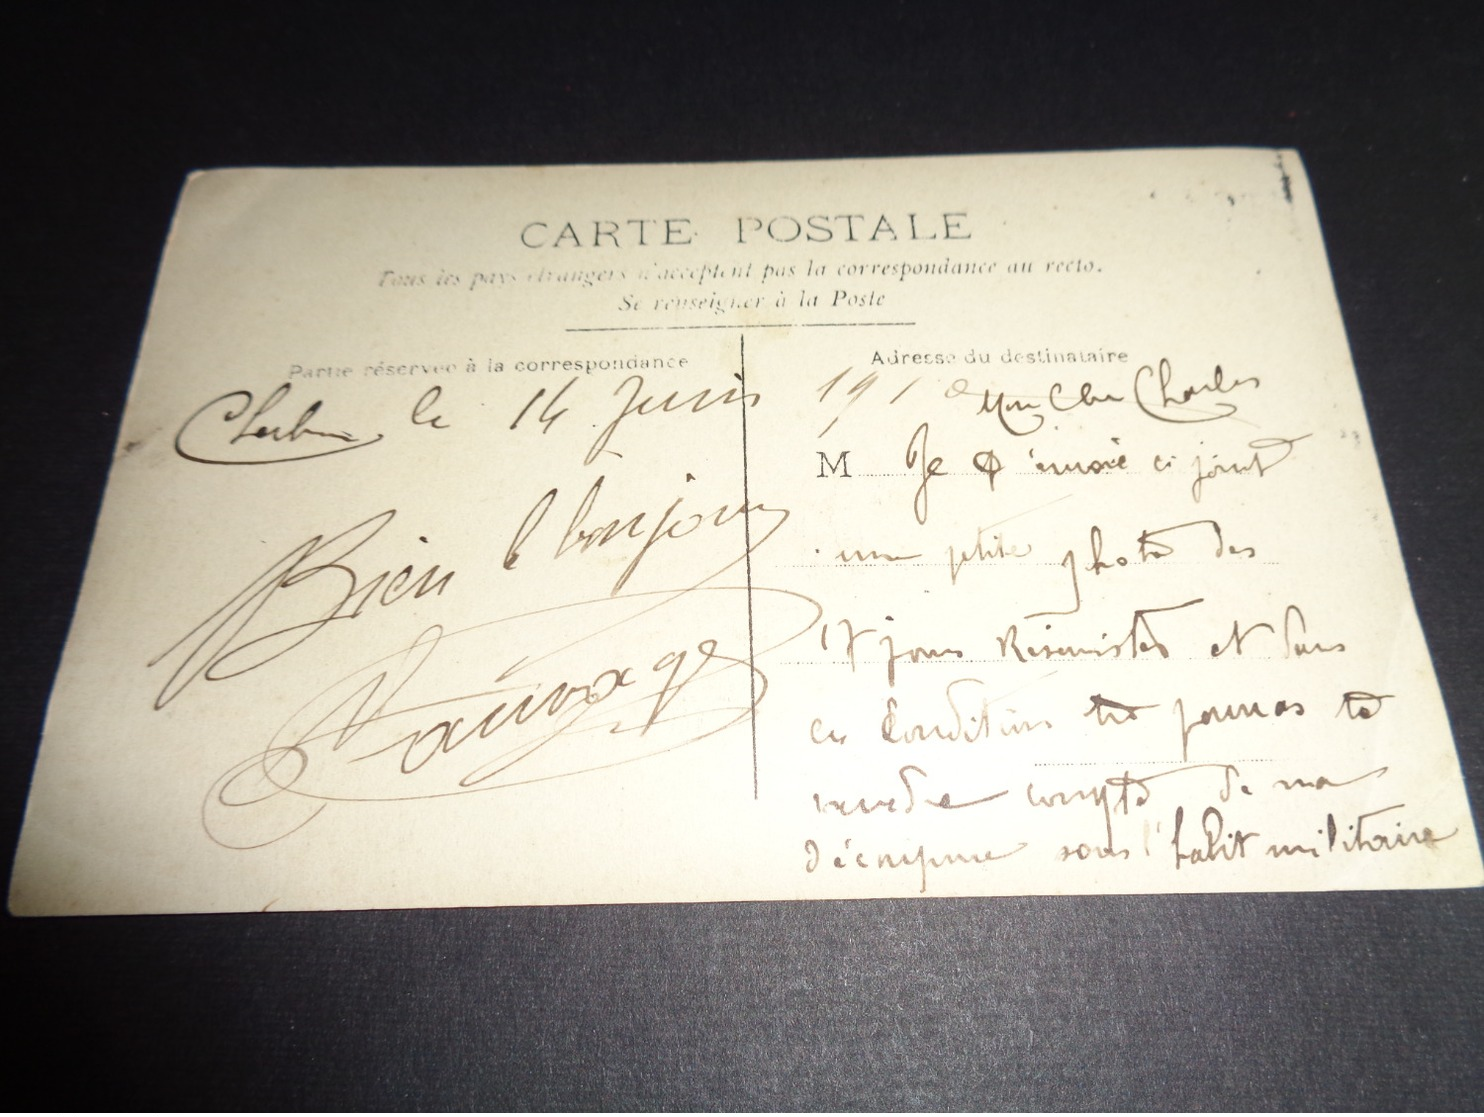 CARTE POSTALE
Tous les pays étrangers n'acceptent pas la correspondance au recto.
Se renseigner à la Poste
Partie réservée à la correspondance
Adresse du destinataire
le 14 Juin 191
Bien le bonjour
Sauvage
Mon Cher Charles
M Je t'envoie ci joint
une ptite photo des
17 jours Réservistes et dans
ces Conditions tu pourras te
rendre compte de ma
décompme sous l'habit militaire